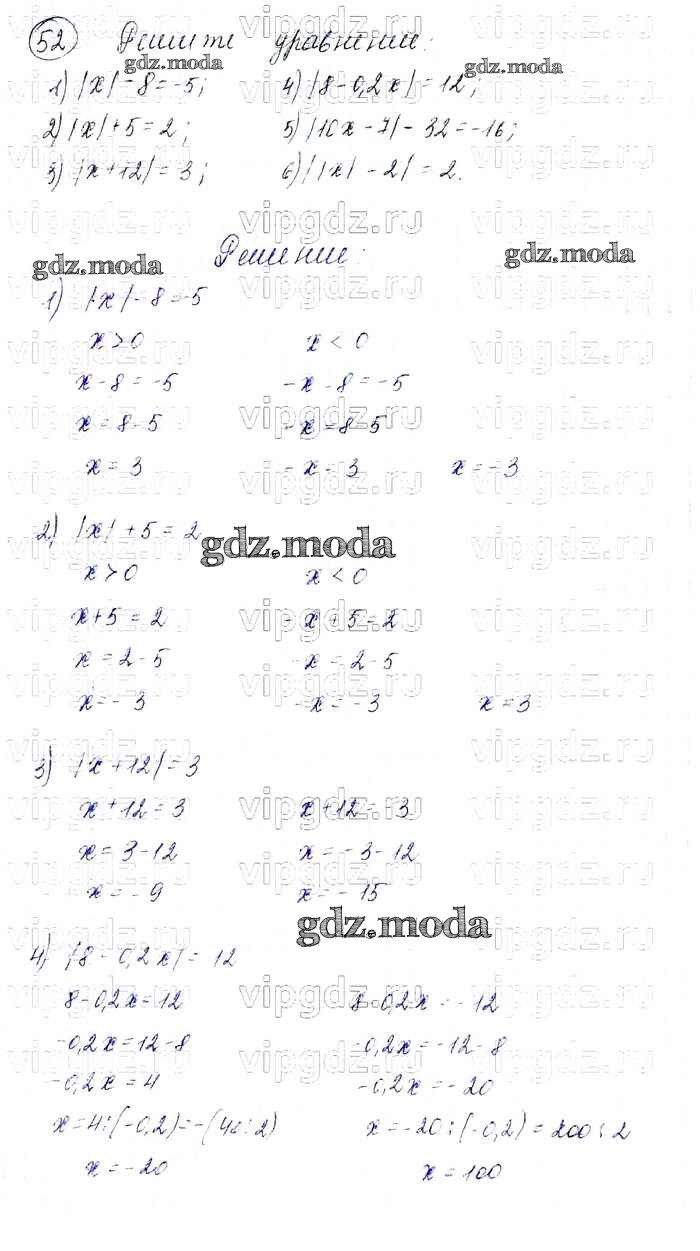 52 Решите уравнение:
1) |x| - 8 = -5; 4) |8 - 0,2x| = 12;
2) |x| + 5 = 2; 5) |10x - 7| - 32 = -16;
3) |x + 12| = 3; 6) ||x| - 2| = 2.
Решение:
1) |x| - 8 = -5
x > 0 x < 0
x - 8 = -5 -x - 8 = -5
x = 8 - 5 -x = 8-5
x = 3 -x = 3 x = -3
2) |x| + 5 = 2
x > 0 x < 0
x + 5 = 2 -x + 5 = 2
x = 2 - 5 -x = 2 - 5
x = -3 -x = -3 x = 3
3) |x + 12| = 3
x + 12 = 3 x + 12 = -3
x = 3 - 12 x = -3 - 12
x = -9 x = -15
4) |8 - 0,2x| = 12
8 - 0,2x = 12 8 - 0,2x = -12
-0,2x = 12 - 8 -0,2x = -12 - 8
-0,2x = 4 -0,2x = -20
x = 4 : (-0,2) = -(40 : 2) x = -20 : (-0,2) = 200 : 2
x = -20 x = 100
gdz.moda
vipgdz.ru